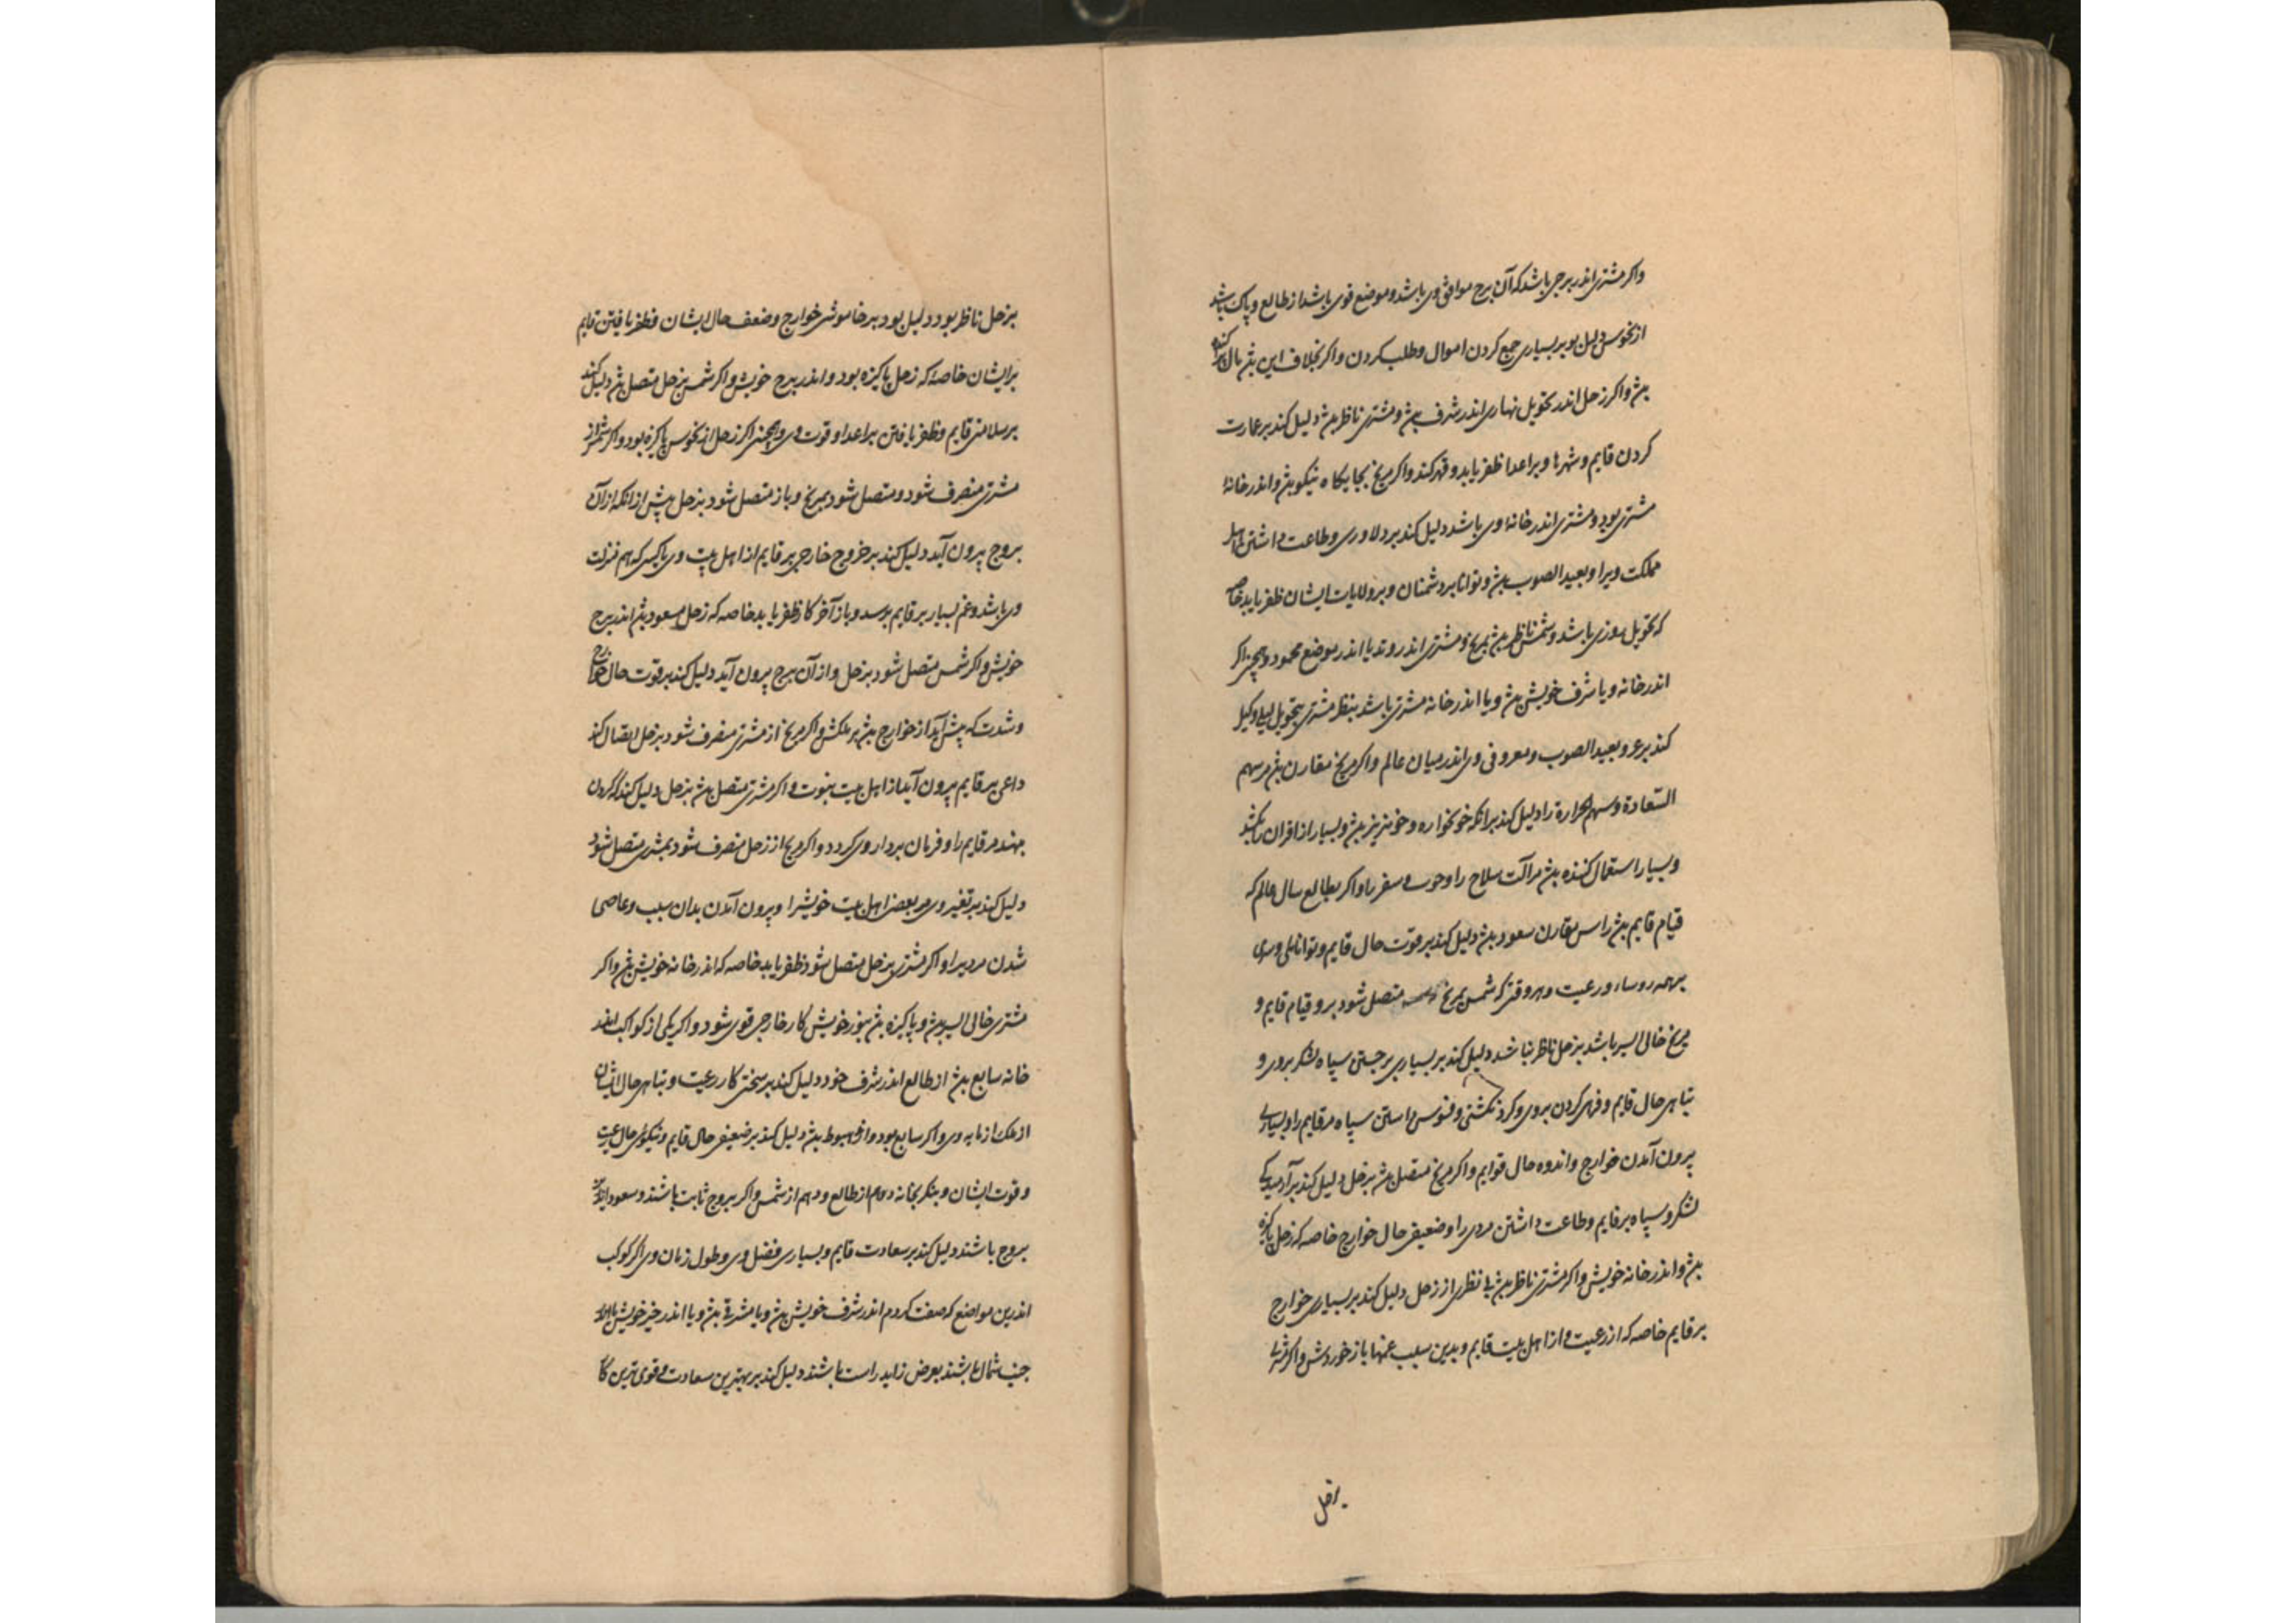 واکر مشتری اندر برجی باشد که آن برج موافق وی باشد و موضع قوی باشد از طالع و پاک باشد
از نحوس دلیل بود بر بسیاری جمع کردن اموال و طلب کردن و اکر بخلاف این بود مال پراکنده
بود و اکر زحل اندر تحویل نهاری اندر شرف بود و مشتری ناظر بود دلیل کند بر عمارت
کردن قایم و شهرها و بر اعدا ظفر یابد و قهر کند و اکر مریخ بجایکاه نیکو بود و اندر خانهٔ
مشتری بود و مشتری اندر خانهٔ وی باشد دلیل کند بر دلاوری و طاعت داشتن اهل
مملکت ویرا و بعید الصوت بود و توانا بر دشمنان و بر ولایات ایشان ظفر یابد خاصه
که تحویل روزی باشد و شمس ناظر بود بمریخ و مشتری اندر وتد یا اندر موضع محمود و همچنین اکر
اندر خانه و یا شرف خویش بود و یا اندر خانه مشتری باشد بنظر مشتری بتحویل لیلی دلیل
کند بر عز و بعید الصوت و معروفی وی اندر میان عالم و اکر مریخ مقارن بود مر سهم
السعادة و سهم را دلیل کند بر انکه خونخواره و خونریز بود و بسیار از اقران را بکشد
و بسیار استعمال کننده بود مر آلت سلاح را و حرب و سفر را و اکر بطالع سال عالم که
قیام قایم بود راس مقارن سعود بود دلیل کند بر قوت حال قایم و توانائی وی
بر همه روسا و رعیت و هر وقتی که شمس بمریخ متصل شود بر وقت قیام قایم و
مریخ خالی السیر باشد بزحل ناظر نباشد دلیل کند بر بسیاری برجستن سپاه لشکر بر وی و
تباهی حال قایم و قهر کردن بر وی و داشتن سپاه مر قایم را و بسیاری
بیرون آمدن خوارج و اندوه حال قوایم و اکر مریخ متصل بود بزحل دلیل کند بر
لشکر و سپاه بر قایم و طاعت داشتن مر وی را و ضعیفی حال خوارج خاصه که زحل پاکیزه
بود و اندر خانه خویش و اکر مشتری ناظر بود با نظری از زحل دلیل کند بر بسیاری خوارج
بر قایم خاصه که از رعیت و از اهل بیت قایم و بدین سبب غمها باز خوردش و اکر مشتری
بزحل
بزحل ناظر بود دلیل بود بر خاموشی خوارج و ضعف حال ایشان و ظفر یافتن قایم
بر ایشان خاصه که زحل پاکیزه بود و اندر برج خویش و اکر شمس بزحل متصل بود دلیل کند
بر سلامتی قایم و ظفر یافتن بر اعدا و قوت وی و همچنین اکر زحل از نحوس پاکیزه بود و اکر شمس از
مشتری منصرف شود و متصل شود بمریخ و باز متصل شود بزحل پیش از انکه از آن
بروج بیرون آید دلیل کند بر خروج خارجی بر قایم از اهل بیت وی یا کسی که هم منزلت
وی باشد و غم بسیار بر قایم برسد و باز آخر کار ظفر یابد خاصه که زحل مسعود بود اندر برج
خویش و اکر شمس متصل شود بزحل و از آن برج بیرون آید دلیل کند بر قوت حال خوارج
و شدت که پیش آید از خوارج بود بر ملکش و اکر مریخ از مشتری منصرف شود بزحل اتصال کند
داعی بر قایم بیرون آید از اهل بیت نبوت و اکر مشتری متصل بود بزحل دلیل کند که کردن
بنهند مر قایم را و فرمان بردار وی کردد و اکر مریخ از زحل منصرف شود بمشتری متصل شود
دلیل کند بر تغیر وی مر بعضی اهل بیت خویش را و بیرون آمدن بدان سبب و عاصی
شدن مر ویرا و اکر مشتری بزحل متصل شود ظفر یابد خاصه که اندر خانه خویش بود و اکر
مشتری خالی السیر بود و پاکیزه بود بنور خویش کار خارجی قوی شود و اکر یکی از کواکب اندر
خانه سابع بود از طالع اندر شرف خود دلیل کند بر سختی کار رعیت و تباهی حال ایشان
از ملک زمانه وی و اکر سابع بود و اندر هبوط بود دلیل کند بر ضعیفی حال قایم و نیکوئی حال رعیت
و قوت ایشان و بنکر بخانه دهم از طالع و دهم از شمس و اکر بروج ثابت باشند و سعود اندرین
بروج باشند دلیل کند بر سعادت قایم و بسیاری فضل وی و طول زمان وی اکر کوکب
اندرین مواضع که صفت کردم اندر شرف خویش بود و یا مشرقی بود و یا اندر حیز خویش یا اندر
جنب شمال باشند بعرض زاید راست باشند دلیل کند بر بهترین سعادت و قوی ترین کار